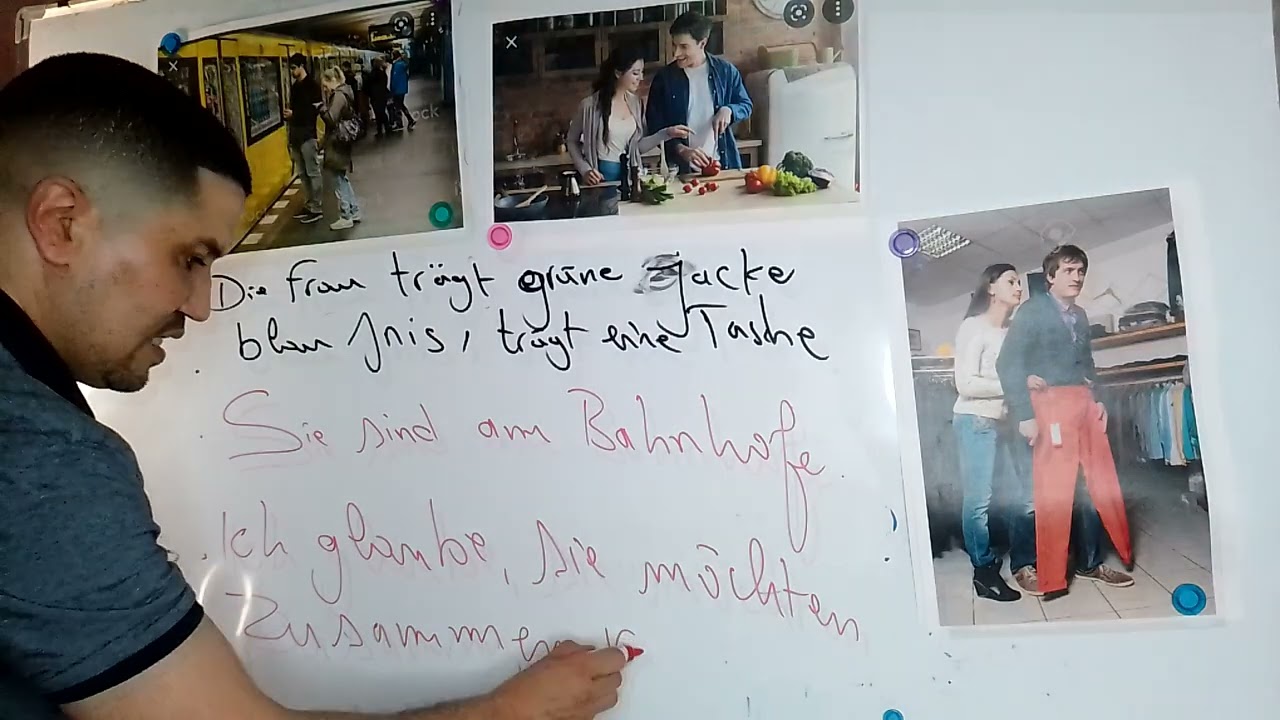 Die Frau trägt grüne Jacke
blau Jnis, trägt eine Tashe
Sie sind am Bahnhofe
Ich glaube, sie möchten
zusammen